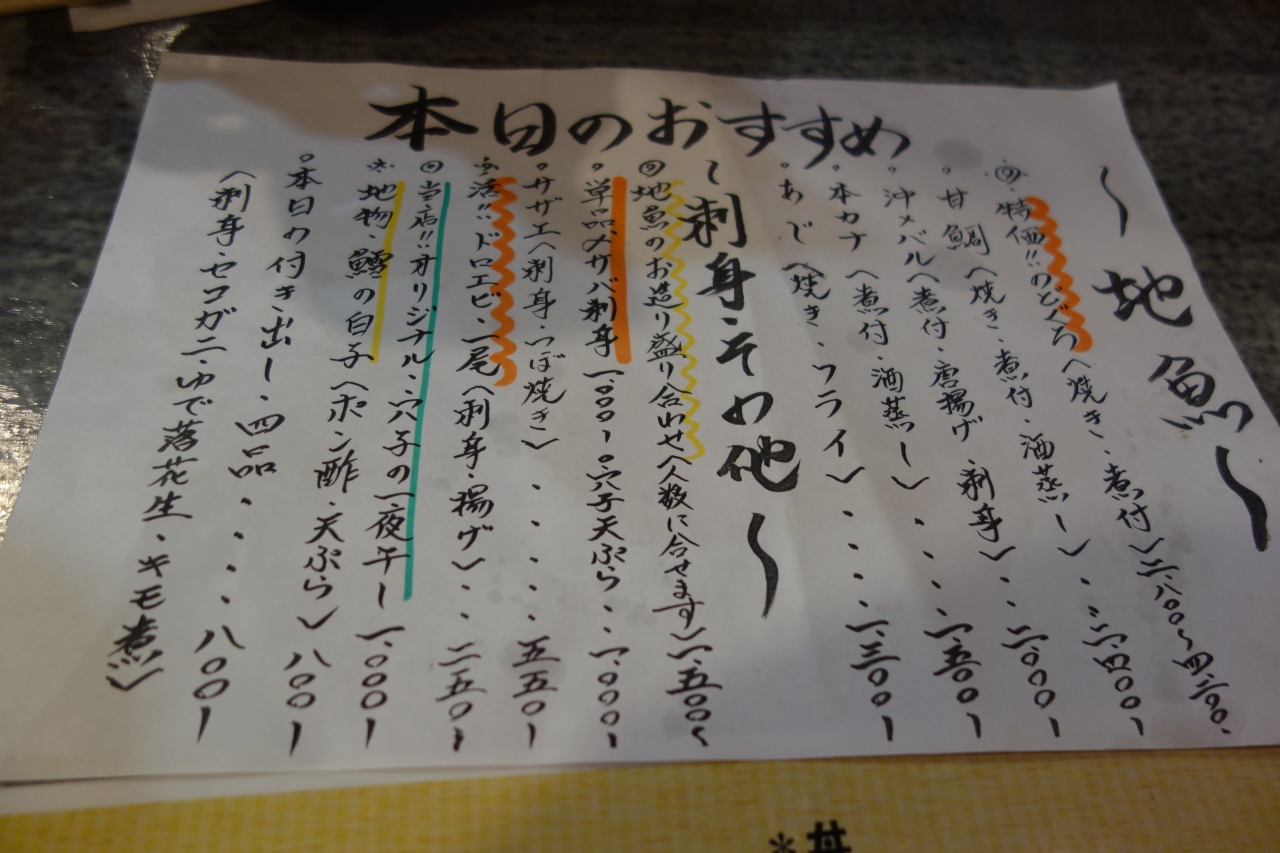 本日のおすすめ
〜地魚〜
◎特価!!のどぐろ〈焼き・煮付〉二、八〇〇〜四、二〇〇
。甘鯛〈焼き・煮付・酒蒸し〉・・二、四〇〇ー
。沖メバル〈煮付・唐揚げ・刺身〉・・二、〇〇〇ー
。本カナ〈煮付・酒蒸し〉・・・一、五〇〇ー
。あじ〈焼き・フライ〉・・・・一、三〇〇ー
〜刺身・その他〜
◎地魚のお造り盛り合わせ〈人数に合せます〉一、五〇〇〜
。単品大サバ刺身一、〇〇〇ー穴子天ぷら・・一、〇〇〇ー
。サザエ〈刺身・つぼ焼き〉・・・・五五〇ー
※活!!ドロエビ・一尾〈刺身・揚げ〉・・二五〇ー
◎当店!!オリジナル・穴子の一夜干し一、〇〇〇ー
※地物 鱈の白子〈ポン酢・天ぷら〉八〇〇ー
。本日の付き出し・四品・・・・八〇〇ー
〈刺身・セコガニ・ゆで落花生・キモ煮〉
*丼